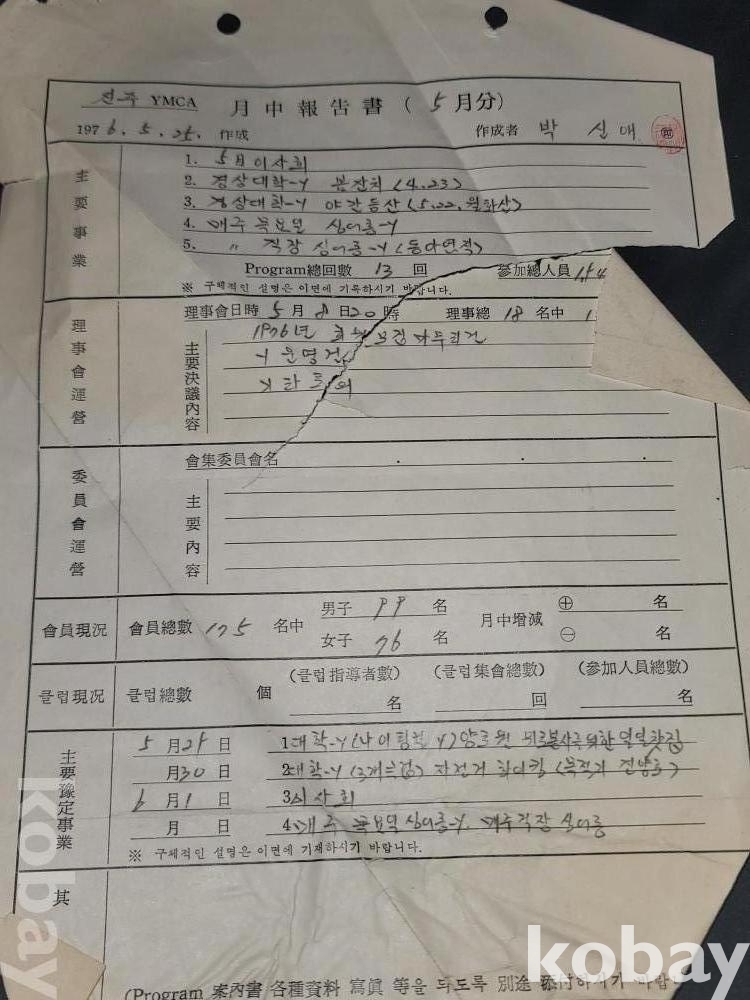 진주 YMCA 月中報告書 ( 5 月分)
1976. 5. 25. 作成 作成者 박 신 애
主要事業
1. 5月이사회
2. 경상대학-Y 봄잔치 (4.23)
3. 경상대학-Y 야간등산 (5.22. 월아산)
4. 매주 목요일 싱어롱-Y
5. 〃 직장 싱어롱-Y (동아연적)
Program總回數 13 回 參加總人員
※ 구체적인 설명은 이면에 기록하시기 바랍니다.
理事會運營
理事會日時 5 月 8 日 20 時 理事總 18 名中
主要決議內容
1976년 회원모집 마무리건
Y 운영건
기타 토의
委員會運營
會集委員會名
主要內容
會員現況 會員總數 175 名中 男子 99 名 月中增減 ⊕ 名
女子 76 名 ⊖ 名
클럽現況 클럽總數 個 (클럽指導者數) 名 (클럽集會總數) 回 (參加人員總數) 名
主要豫定事業
5 月 29 日 1. 대학-Y (나이팅겔 Y) 양로원 위한 일일찻집
月 30 日 2. 대학-Y (3개클럽) 자전거 하이킹 (목적지 진양호)
6 月 1 日 3. 이사회
月 日 4. 매주 목요일 싱어롱-Y. 매주직장 싱어롱
※ 구체적인 설명은 이면에 기재하시기 바랍니다.
其
(Program 案內書 各種資料 寫眞 等을 되도록 別途 添付하시기 바랍니
kobay
kobay